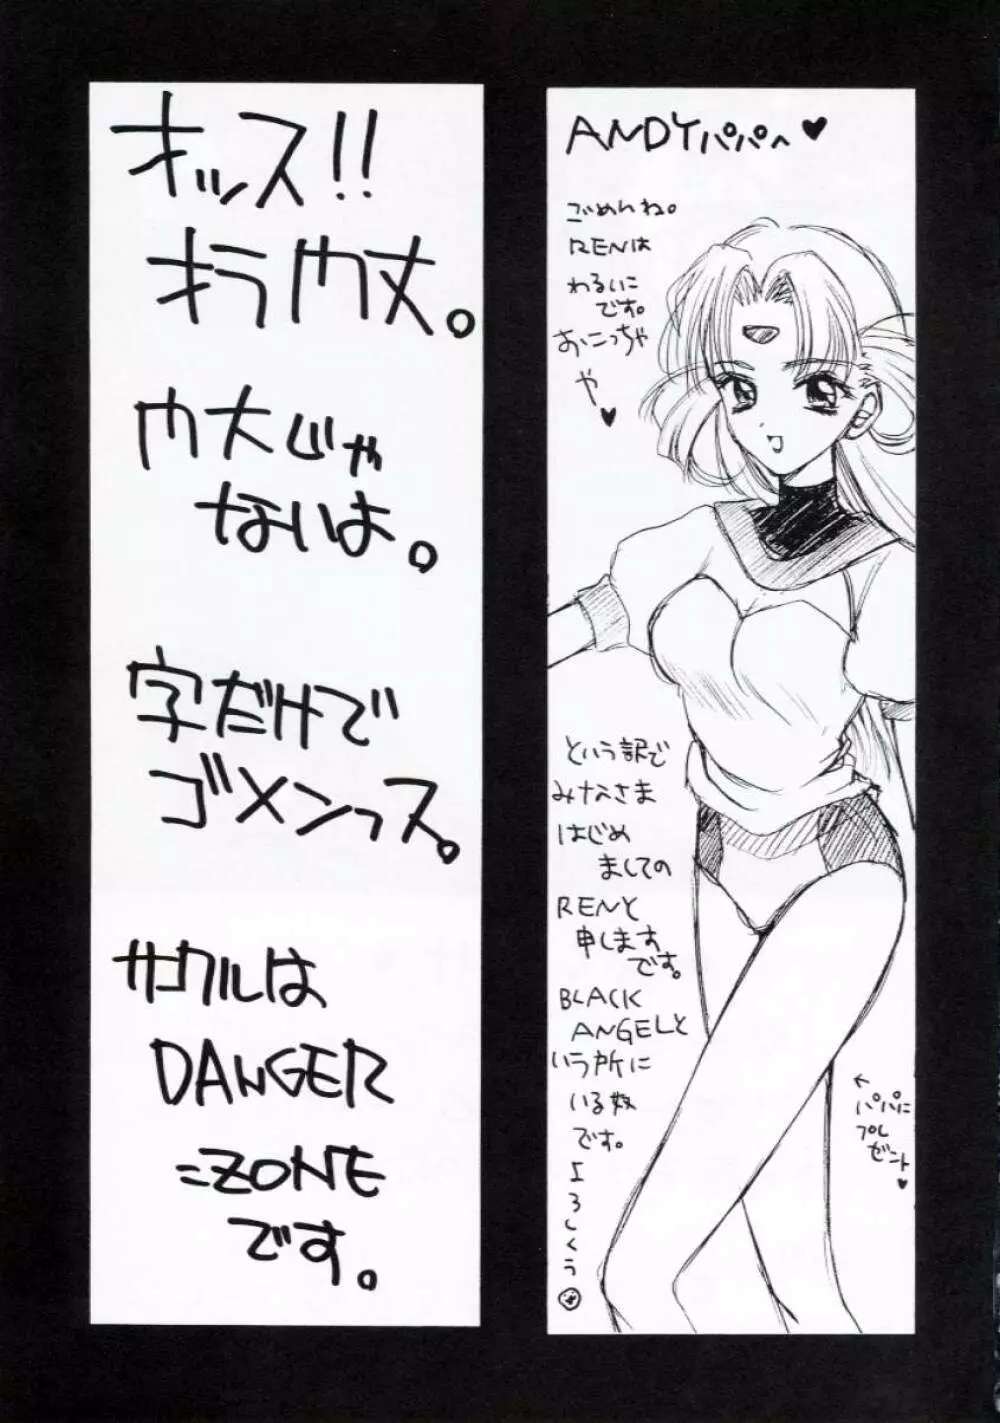 ANDYパパへ♥
ごめんね。
RENは
わるいこ
です。
おこっちゃ
や♥
という訳で
みなさま
はじめ
ましての
RENと
申します
です。
BLACK
ANGELと
いう所に
いる奴
です。
よろしくぅ
←
パパに
プレ
ゼント
♥
オッス!!
オラ内丈。
内大じゃ
ないよ。
字だけで
ゴメンっス。
サークルは
DANGER
=ZONE
です。